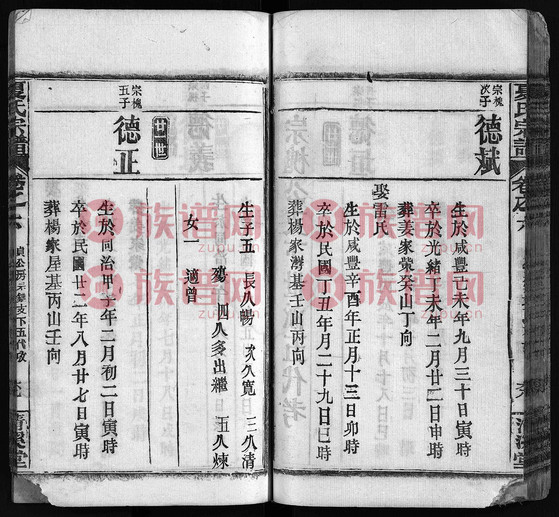 夏氏宗譜
卷之六
宗槐
次子
德斌
生於咸豐己未年九月三十日寅時
卒於光緒丁未年二月廿二日申時
葬姜家榮癸山丁向
娶雷氏
生於咸豐辛酉年正月十三日卯時
卒於民國丁丑年月二十九日巳時
葬楊家灣基壬山丙向
生子五
長久暢
次久寬
三久清
四久多出繼
五久煉
女一
適曾
廿一世
宗槐
五子
德正
生於同治甲子年二月初二日寅時
卒於民國廿二年八月廿七日寅時
葬楊家屋基丙山壬向
夏氏宗譜
卷之六
族谱网
zupu.cn